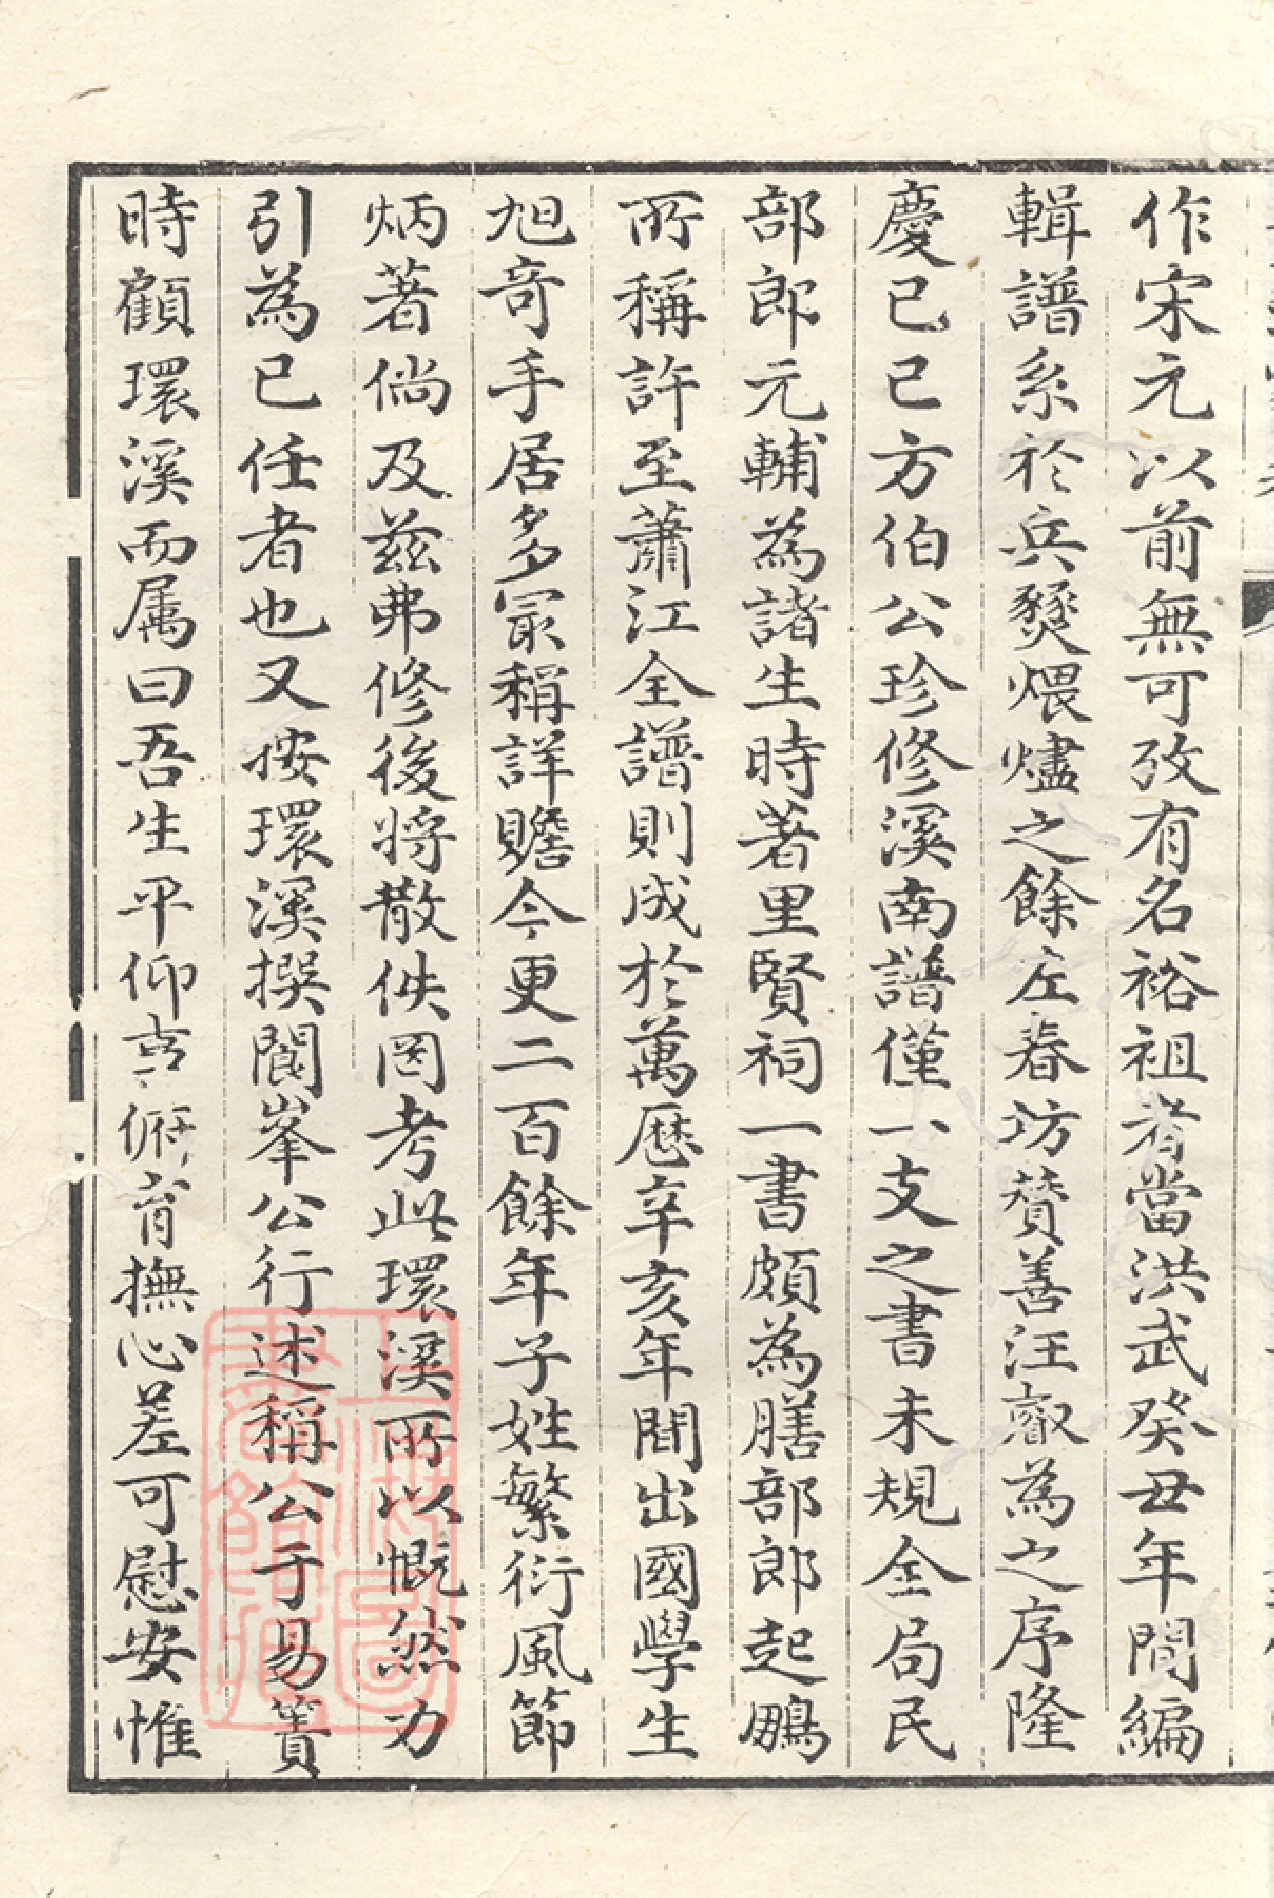 作宋元以前無可攷有名裕祖者當洪武癸丑年間編
輯譜系於兵燹煨燼之餘左春坊賛善汪叡為之序隆
慶已已方伯公珍修溪南譜僅一支之書未規全局民
部郎元輔為諸生時著里賢祠一書頗為膳部郎起鵬
所稱許至蕭江全譜則成於萬歷辛亥年間出國學生
旭竒手居多冣稱詳贍今更二百餘年子姓繁衍風節
炳著倘及兹弗修後將散佚罔考此環溪所以慨然力
引為已任者也又按環溪撰閬峯公行述稱公于易簀
時顧環溪而属曰吾生平仰事俯育撫心差可慰安惟
上海圖書館藏